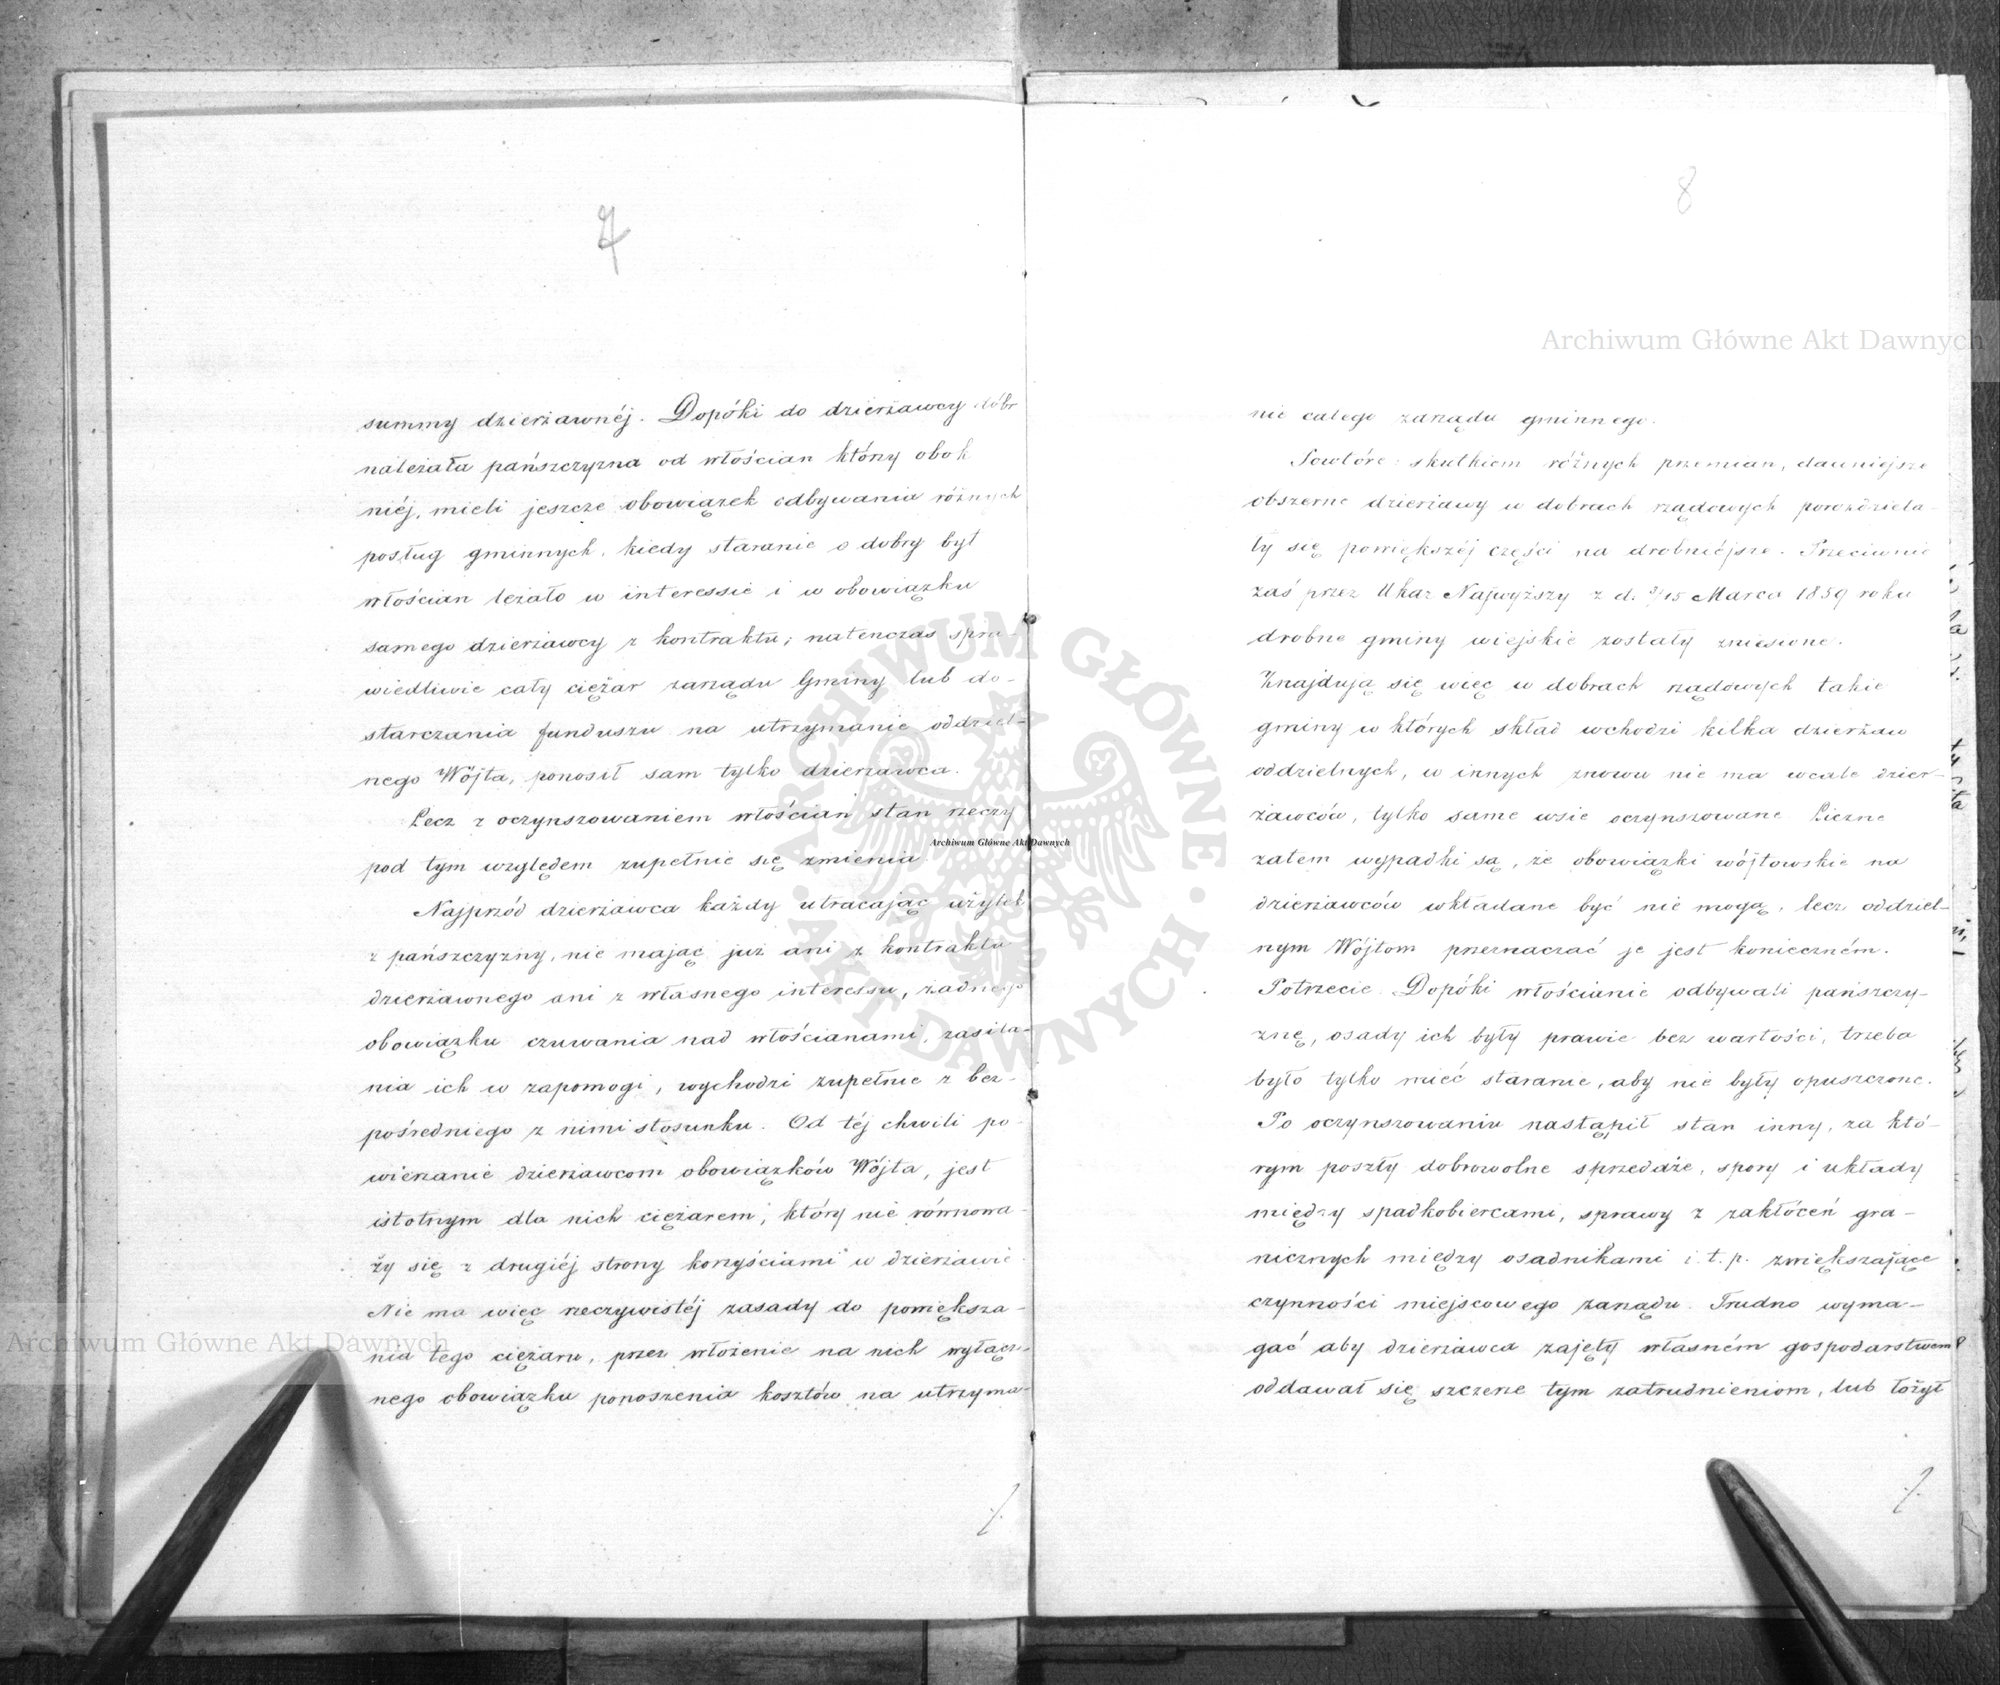 7
summy dzierżawnéj. Dopóki do dzierżawcy dóbr
należała pańszczyzna od włościan który obok
niéj, mieli jeszcze obowiązek odbywania różnych
posług gminnych, kiedy staranie o dobry byt
włościan leżało w interessie i w obowiązku
samego dzierżawcy z kontraktu; natenczas spra-
wiedliwie cały ciężar zarządu Gminy lub do-
starczania funduszu na utrzymanie oddziel-
nego Wójta, ponosił sam tylko dzierżawca.
Lecz z oczynszowaniem włościan stan rzeczy
pod tym względem zupełnie się zmienia.
Najprzód dzierżawca każdy utracając użytek
z pańszczyzny, nie mając już ani z kontraktu
dzierżawnego ani z własnego interessu, żadnego
obowiązku czuwania nad włościanami, zasila-
nia ich w zapomogi, wychodzi zupełnie z bez-
pośredniego z nimi stosunku. Od téj chwili po-
wierzanie dzierżawcom obowiązków Wójta, jest
istotnym dla nich ciężarem, który nie równowa-
ży się z drugiéj strony korzyściami w dzierżawie.
Nie ma więc rzeczywistéj zasady do powiększa-
nia tego ciężaru, przez włożenie na nich wyłącz-
nego obowiązku ponoszenia kosztów na utrzyma-
./.
8
nie całego zarządu gminnego.
Powtóre: skutkiem różnych przemian, dawniejsze
obszerne dzierżawy w dobrach rządowych porozdziela-
ły się powiększéj części na drobniéjsze. Przeciwnie
zaś przez Ukaz Najwyższy z d. 3/15 Marca 1859 roku
drobne gminy wiejskie zostały zniesione.
Znajdują się więc w dobrach rządowych takie
gminy w których skład wchodzi kilka dzierżaw
oddzielnych, w innych znowu nie ma wcale dzier-
żawców, tylko same wsie oczynszowane. Liczne
zatem wypadki są, że obowiązki wójtowskie na
dzierżawców wkładane być nie mogą, lecz oddziel-
nym Wójtom przeznaczać je jest konieczném.
Potrzecie. Dopóki włościanie odbywali pańszczy-
znę, osady ich były prawie bez wartości, trzeba
było tylko mieć staranie, aby nie były opuszczone.
Po oczynszowaniu nastąpił stan inny, za któ-
rym poszły dobrowolne sprzedaże, spory i układy
między spadkobiercami, sprawy z zakłóceń gra-
nicznych między osadnikami i.t.p. zwiększające
czynności miejscowego zarządu. Trudno wyma-
gać aby dzierżawca zajęty własném gospodarstwem
oddawał się szczerze tym zatrudnieniom, lub łożył
./.
Archiwum Główne Akt Dawnych
Archiwum Główne Akt Dawnych
Archiwum Główne Akt Dawnych
ARCHIWUM GŁÓWNE · AKT DAWNYCH ·